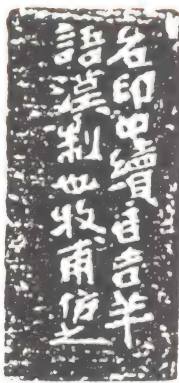 名印中續㠯吉羊
語漢制也牧甫仿之